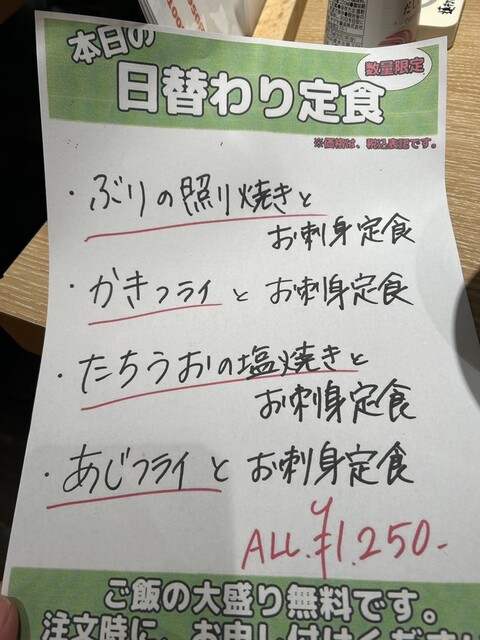 本日の
日替わり定食
数量限定
※価格は、税込表記です。
・ぶりの照り焼きと
お刺身定食
・かきフライとお刺身定食
・たちうおの塩焼きと
お刺身定食
・あじフライとお刺身定食
ALL.¥1.250-
ご飯の大盛り無料です。
注文時に、お申し付けください